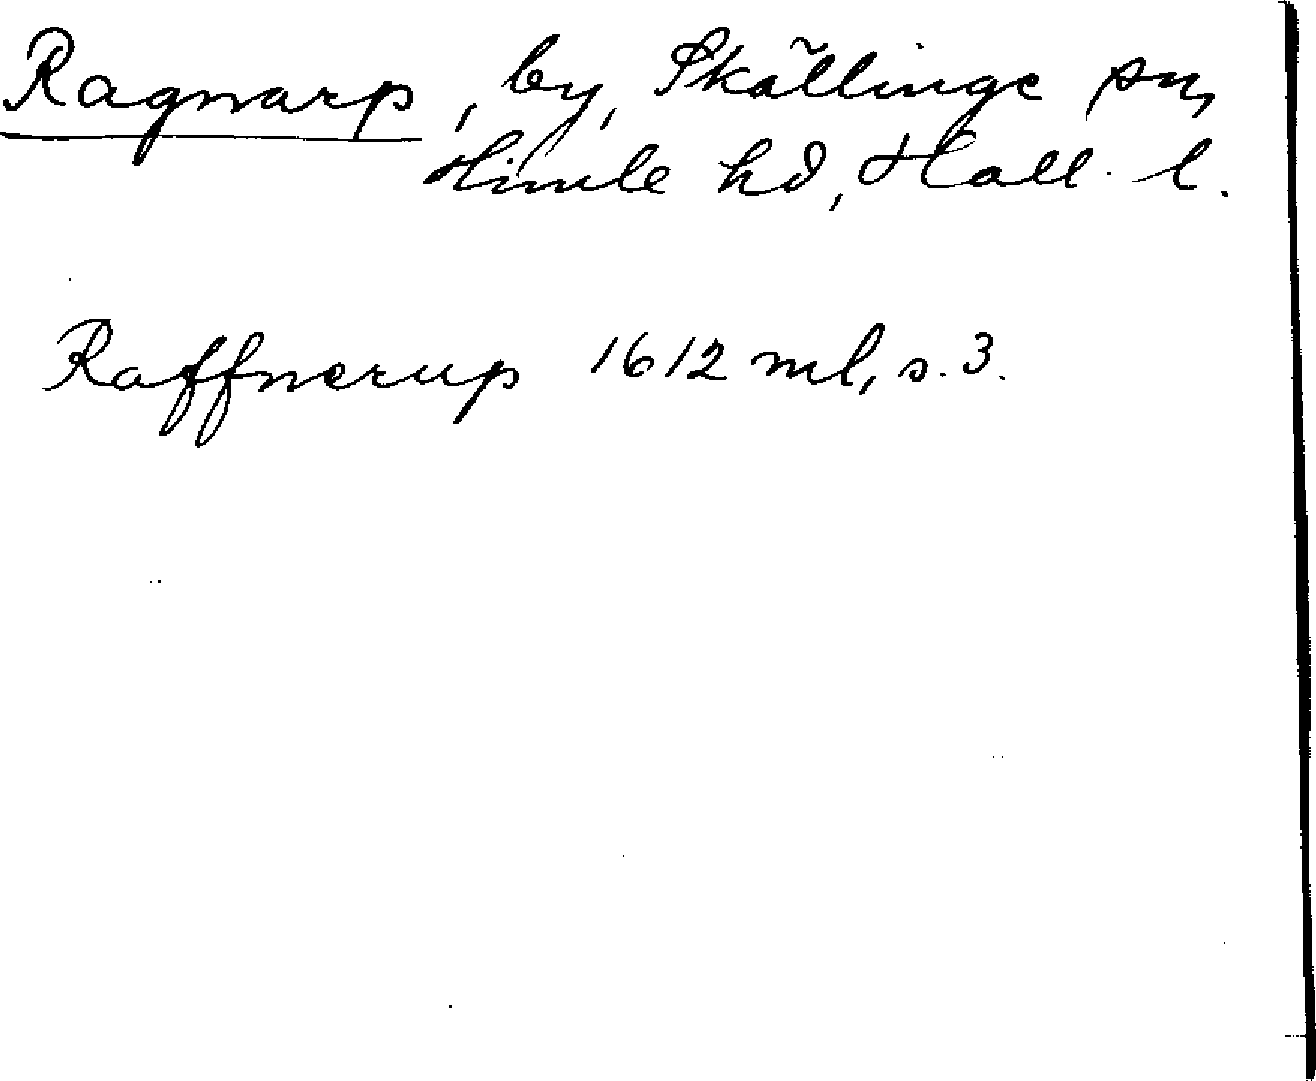 Ragnarp, by, Skällinge sn,
Himle hd, Hall. l.
Raffnerup 1612 ml, s. 3.